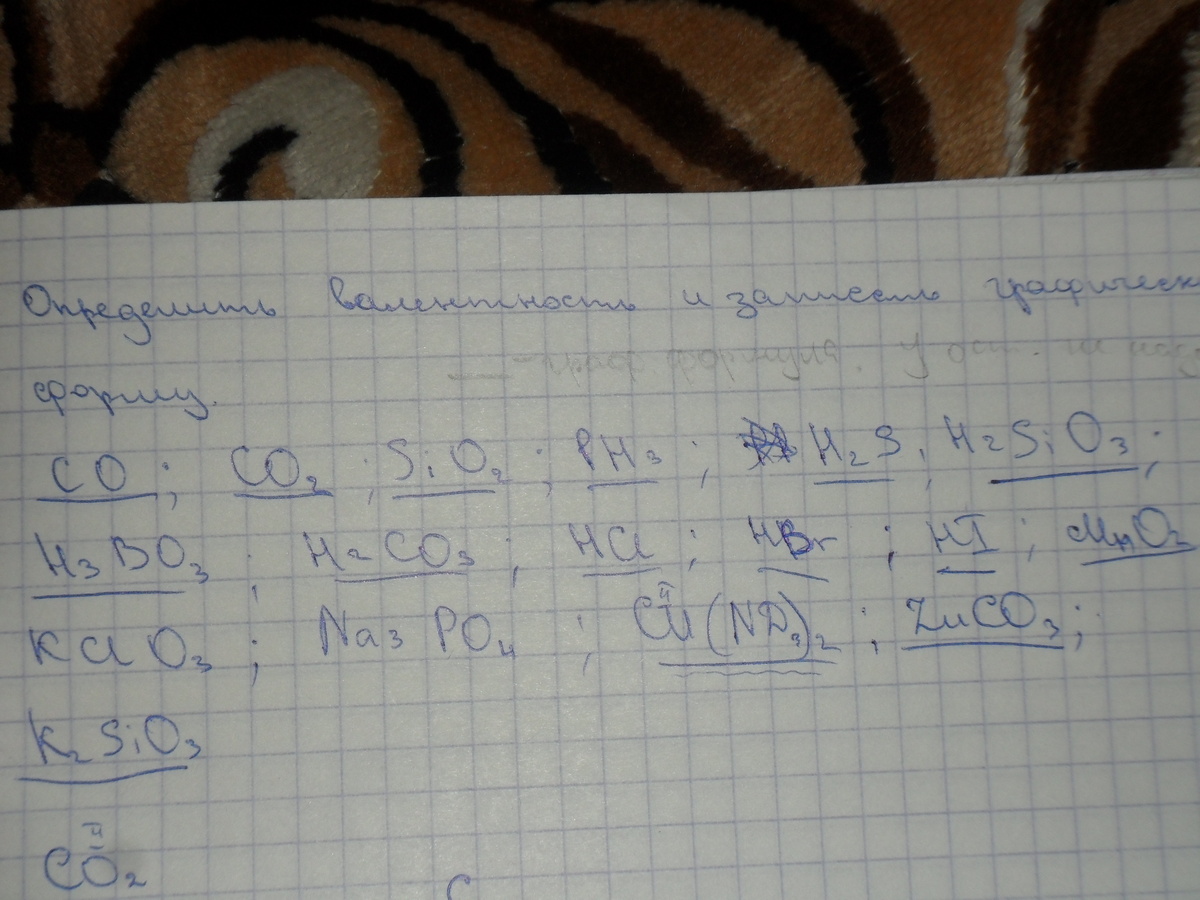 Определить валентность и записать графическ
граф формула. У ост.
форму.
CO; CO₂; SiO₂; PH₃; H₂S; H₂SiO₃;
H₃BO₃; H₂CO₃; HCl; HBr; HI; MnO₂
KClO₃; Na₃PO₄; Cu(NO₃)₂; ZnCO₃;
K₂SiO₃
II
CO₂
C